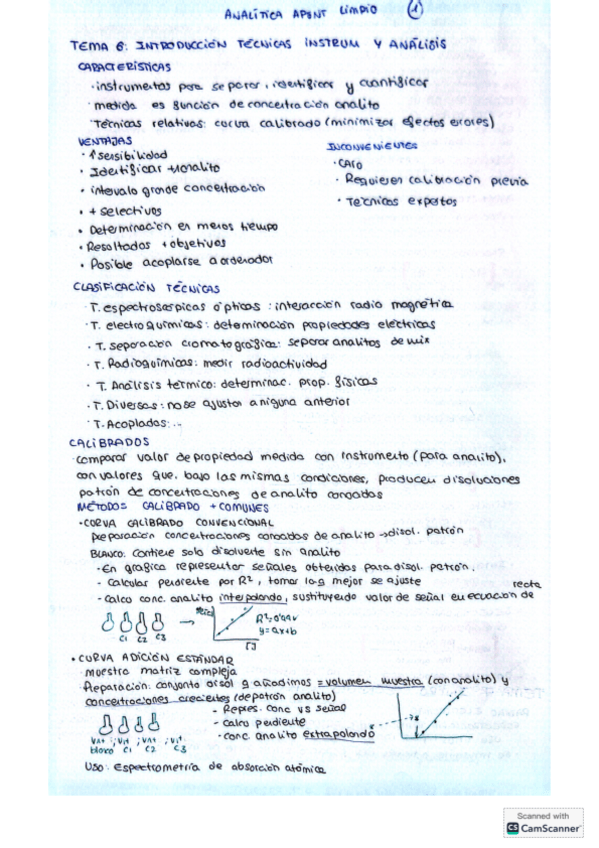 ANALÍTICA APUNT LIMPIO 1
TEMA 6: INTRODUCCIÓN TÉCNICAS INSTRUM Y ANÁLISIS
CARACTERÍSTICAS
· instrumentos para separar, identificar y cuantificar
· medida es función de concentración analito
· Técnicas relativas: curva calibrado (minimizar efectos errores)
VENTAJAS
· ↑ sensibilidad
· Identificar +1 analito
· intervalo grande concentración
· + selectivos
· Determinación en menos tiempo
· Resultados + objetivos
· Posible acoplarse a ordenador
INCONVENIENTES
· CARO
· Requieren calibración previa
· Técnicos expertos
CLASIFICACIÓN TÉCNICAS
· T. espectroscópicas ópticas: interacción radio magnética
· T. electroquímicas: determinación propiedades eléctricas
· T. separación cromatográfica: separar analitos de mix
· T. Radioquímicas: medir radioactividad
· T. Análisis térmico: determinac. prop. físicas
· T. Diversas: no se ajustan a niguna anterior
· T. Acopladas: ..
CALIBRADOS
· Comparar valor de propiedad medida con instrumento (para analito),
con valores que, bajo las mismas condiciones, producen disoluciones
patrón de concentraciones de analito conocidas
MÉTODOS CALIBRADO + COMUNES
· CURVA CALIBRADO CONVENCIONAL
preparación concentraciones conocidas de analito → disol. patrón
BLANCO: contiene solo disolvente sin analito
- En gráfica representar señales obtenidas para disol. patrón.
- Calcular pendiente por R², tomar la q mejor se ajuste
- Calco conc. analito interpolando, sustituyendo valor de señal en ecuación de recta
C1 C2 C3
R²=0'99
y=ax+b
[ ]
· CURVA ADICIÓN ESTÁNDAR
· Muestra matriz compleja
· Preparación: conjunto disol q añadimos = volumen muestra (con analito) y
concentraciones crecientes (de patrón analito)
- Repres. conc vs señal
- Calco pendiente
- conc. analito extrapolando
blanco C1 C2 C3
USO: Espectrometría de absorción atómica
Scanned with
CS CamScanner